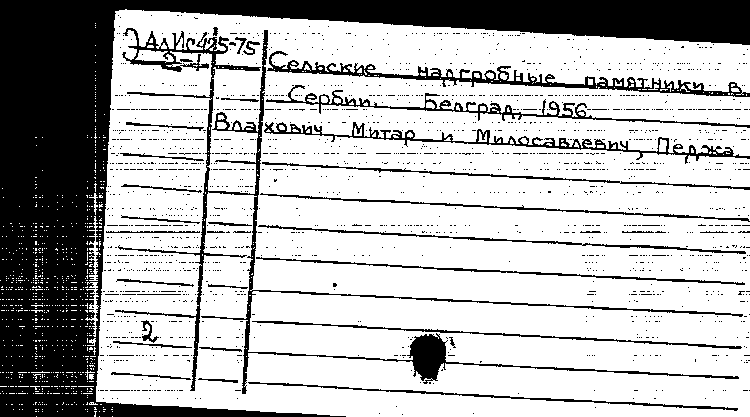 ЭАлИс425-75
2-1
Сельские надгробные памятники в
Сербии. Белград, 1956.
Влахович, Митар и Милосавлевич, Педжа
2